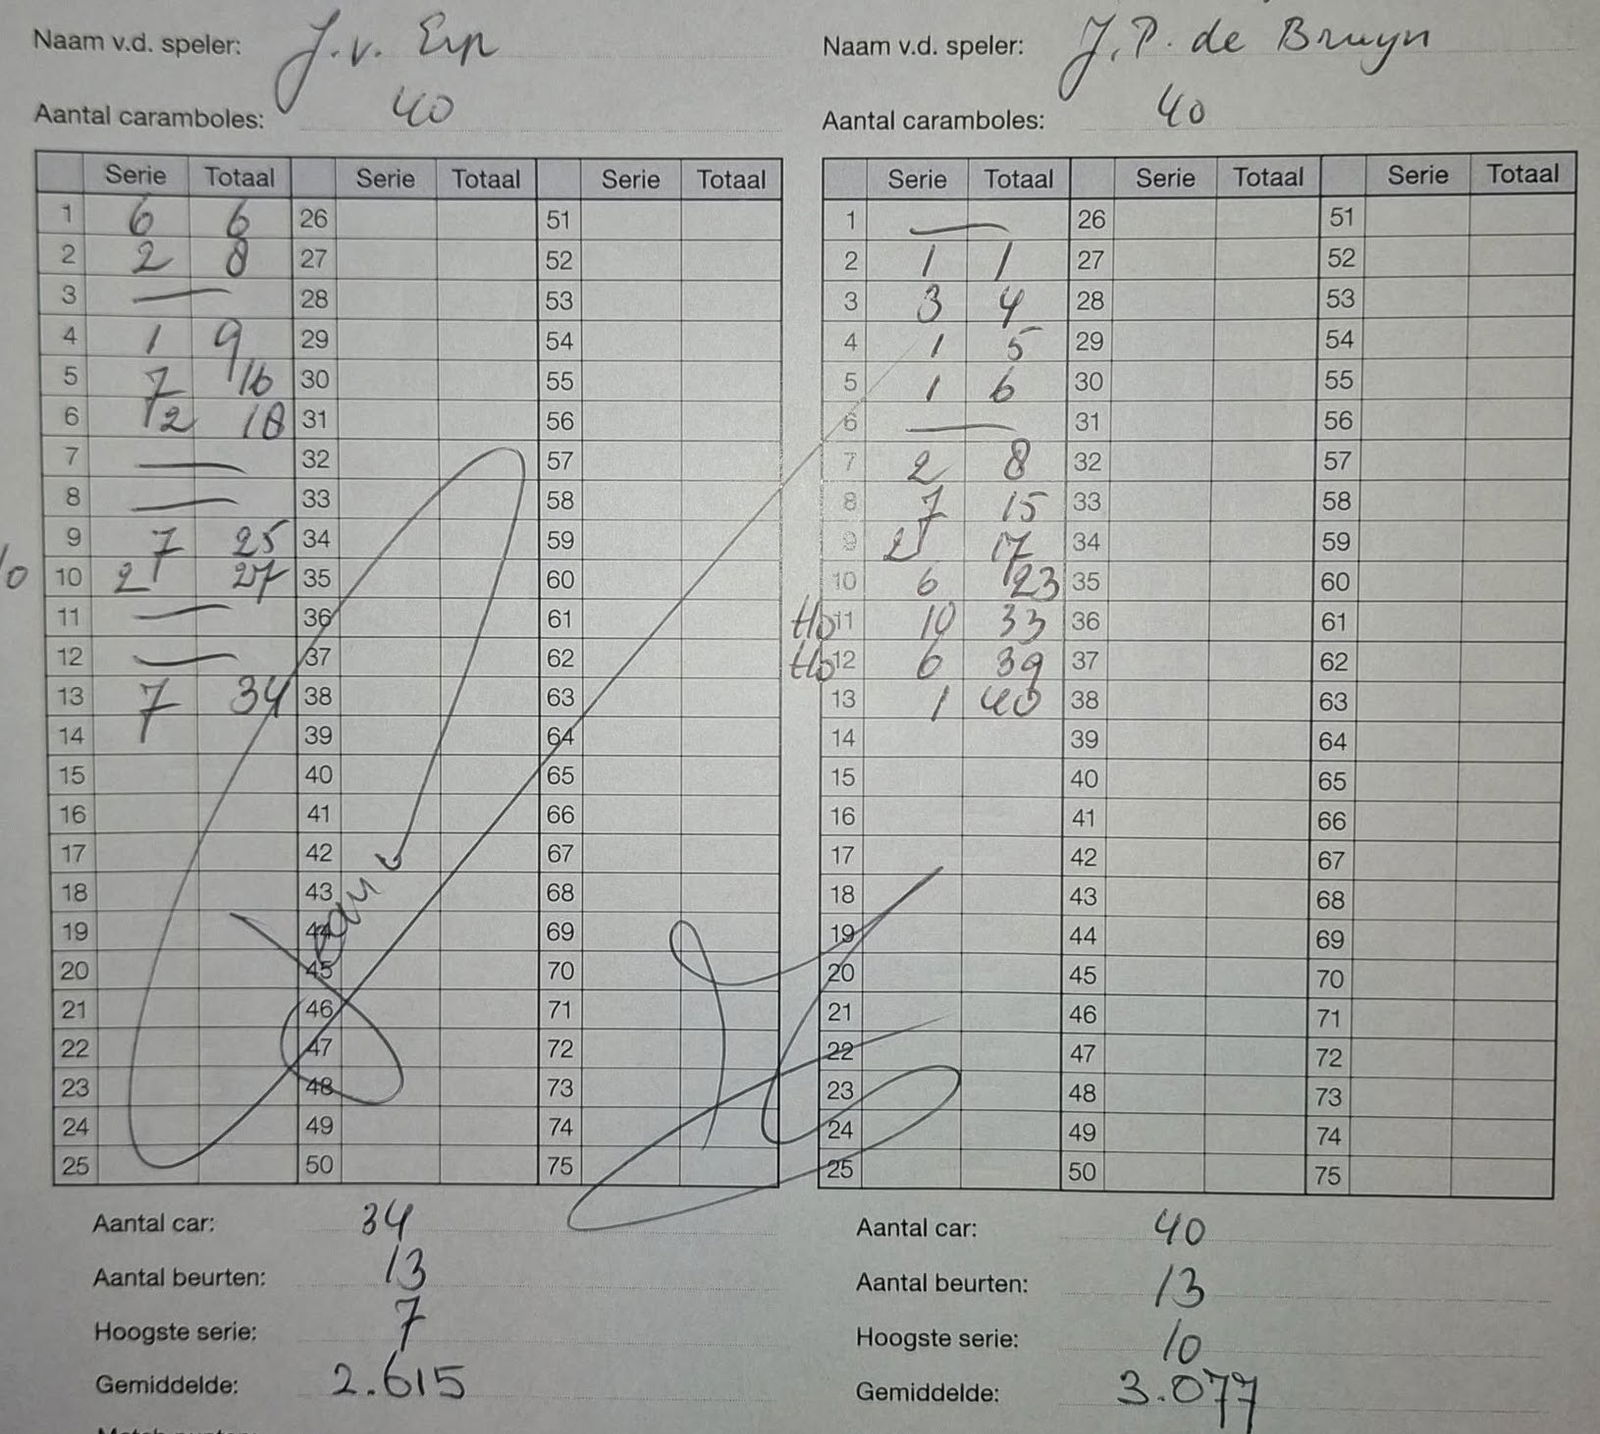 Naam v.d. speler: J. v. Erp
Aantal caramboles: 40
Serie Totaal Serie Totaal Serie Totaal
1 6 6 26 51
2 2 8 27 52
3 — 28 53
4 1 9 29 54
5 7 16 30 55
6 2 18 31 56
7 — 32 57
8 — 33 58
9 7 25 34 59
10 2 27 35 60
11 — 36 61
12 — 37 62
13 7 34 38 63
14 39 64
15 40 65
16 41 66
17 42 67
18 43 68
19 44 69
20 45 70
21 46 71
22 47 72
23 48 73
24 49 74
25 50 75
Aantal car: 34
Aantal beurten: 13
Hoogste serie: 7
Gemiddelde: 2.615
Naam v.d. speler: J. P. de Bruyn
Aantal caramboles: 40
Serie Totaal Serie Totaal Serie Totaal
1 — 26 51
2 1 1 27 52
3 3 4 28 53
4 1 5 29 54
5 1 6 30 55
6 — 31 56
7 2 8 32 57
8 7 15 33 58
9 2 17 34 59
10 6 23 35 60
11 10 33 36 61
12 6 39 37 62
13 1 40 38 63
14 39 64
15 40 65
16 41 66
17 42 67
18 43 68
19 44 69
20 45 70
21 46 71
22 47 72
23 48 73
24 49 74
25 50 75
Aantal car: 40
Aantal beurten: 13
Hoogste serie: 10
Gemiddelde: 3.077